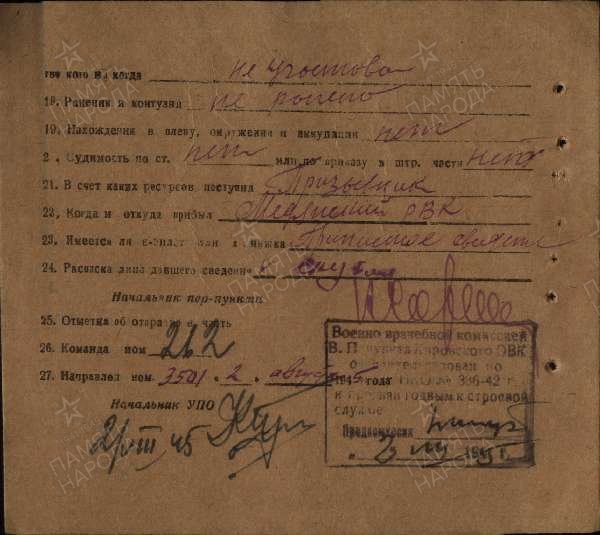 тве кого и когда не участвова
18. Ранения и контузия не ранено
19. Нахождения в плену, окружении и аккупации нет
2 . Судимость по ст. нет или по приказу в штр. части нет
21. В счет каких ресурсов поступил Призывник
22. Когда и откуда прибыл РВК
23. Имеется ли в-билет или книжка Приписное свидете
24. Расписка лица давшего сведения
Начальник пер-пункта
25. Отметка об отправке в часть
26. Команда ном 262
27. Направлен ном. 3501. 2. август 45
Начальник УПО
2/VIII 45
Военно врачебной комиссией
В. П пункта Кировского ОВК
освидетельствован по
1945 года НКО № 336-42 г.
и признан годным к строевой
службе
Предкомиссии
" 2 VIII 1945 г.
ПАМЯТЬ НАРОДА